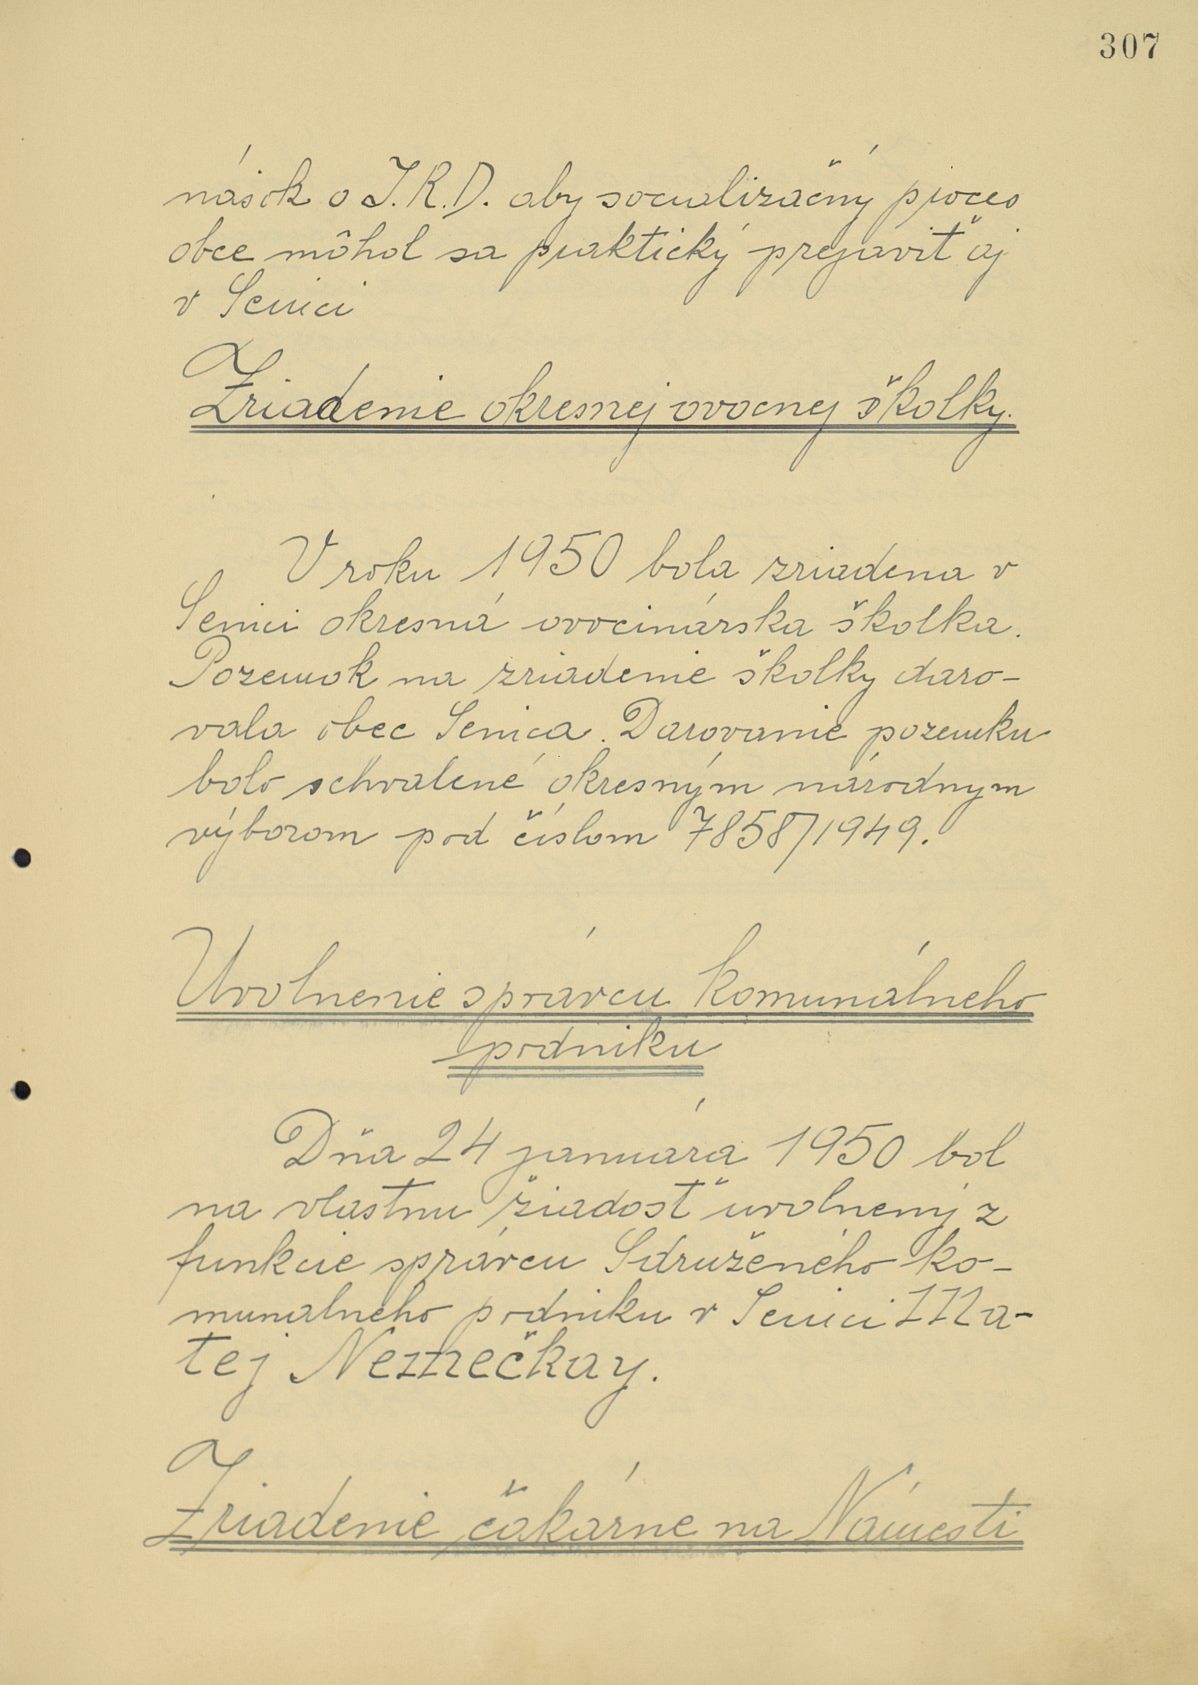 307
nások o J.R.D. aby socializačný proces
obce môhol sa praktický prejaviť aj
v Senici
Zriadenie okresnej ovocnej školky.
V roku 1950 bola zriadena v
Senici okresná ovocinárska školka.
Pozemok na zriadenie školky daro-
vala obec Senica. Darovanie pozemku
bolo schvalené okresným národnym
výborom pod číslom 7858/1949.
Uvolnenie správcu komunálneho
podniku
Dňa 24 januára 1950 bol
na vlastnu žiadosť uvolnený z
funkcie správcu Sdruženého ko-
munalneho podniku v Senici Ma-
tej Nemečkay.
Zriadenie čakárne na Námesti